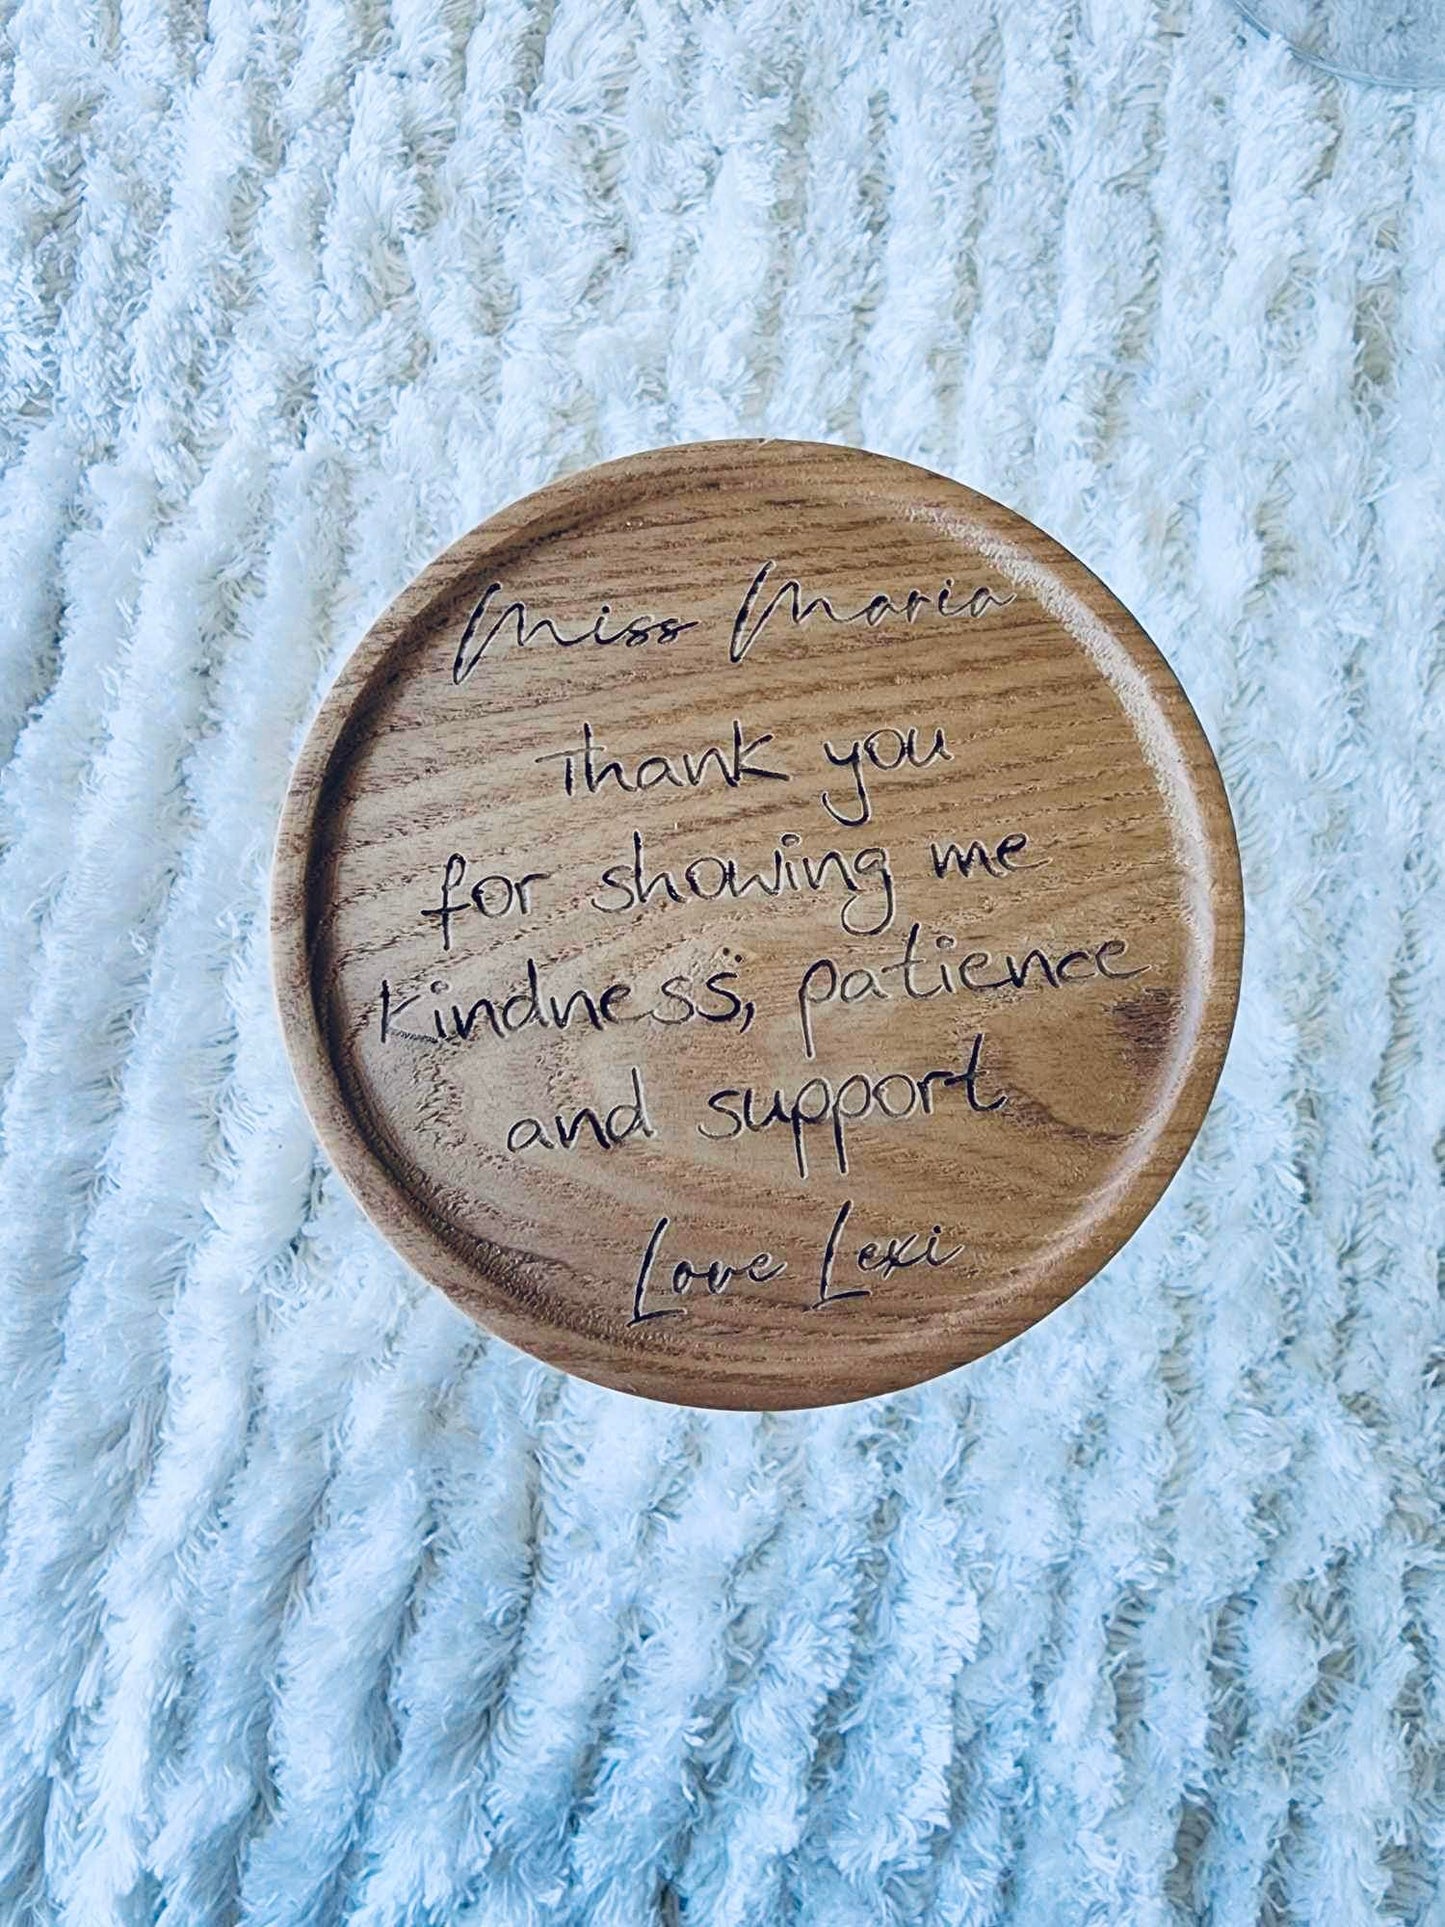 Miss Maria
Thank you
for showing me
kindness, patience
and support
Love Lexi